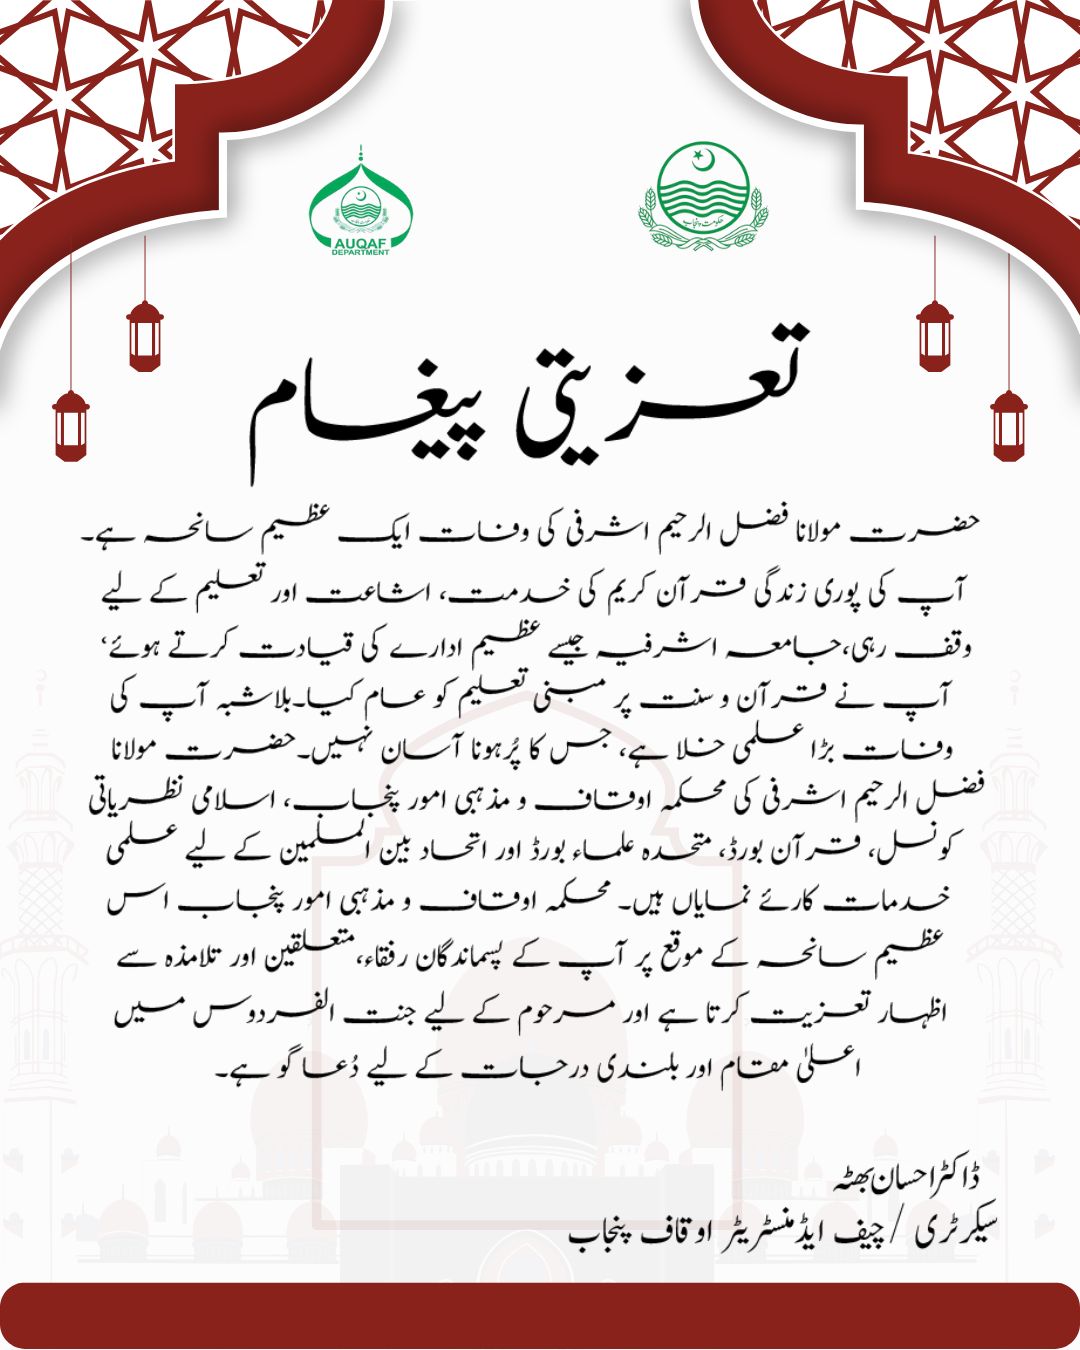 AUQAF
DEPARTMENT
حکومت پنجاب
تعزیتی پیغام
حضرت مولانا فضل الرحیم اشرفی کی وفات ایک عظیم سانحہ ہے۔
آپ کی پوری زندگی قرآن کریم کی خدمت، اشاعت اور تعلیم کے لیے
وقف رہی،جامعہ اشرفیہ جیسے عظیم ادارے کی قیادت کرتے ہوئے‘
آپ نے قرآن و سنت پر مبنی تعلیم کو عام کیا۔بلاشبہ آپ کی
وفات بڑا علمی خلا ہے، جس کا پُرہونا آسان نہیں۔حضرت مولانا
فضل الرحیم اشرفی کی محکمہ اوقاف و مذہبی امور پنجاب، اسلامی نظریاتی
کونسل، قرآن بورڈ، متحدہ علماء بورڈ اور اتحاد بین المسلمین کے لیے علمی
خدمات کارئے نمایاں ہیں۔ محکمہ اوقاف و مذہبی امور پنجاب اس
عظیم سانحہ کے موقع پر آپ کے پسماندگان رفقاء،متعلقین اور تلامذہ سے
اظہار تعزیت کرتا ہے اور مرحوم کے لیے جنت الفردوس میں
اعلیٰ مقام اور بلندی درجات کے لیے دُعا گو ہے۔
ڈاکٹراحسان بھٹہ
سیکرٹری /چیف ایڈمنسٹریٹر اوقاف پنجاب